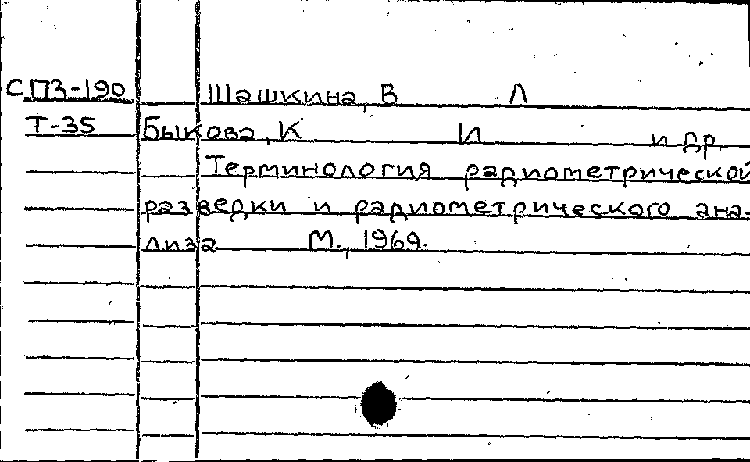 СПЗ-190 Шашкина, В Л
Т-35 Быкова, К И и др.
Терминология радиометрической
разведки и радиометрического ана-
лиза М., 1969.